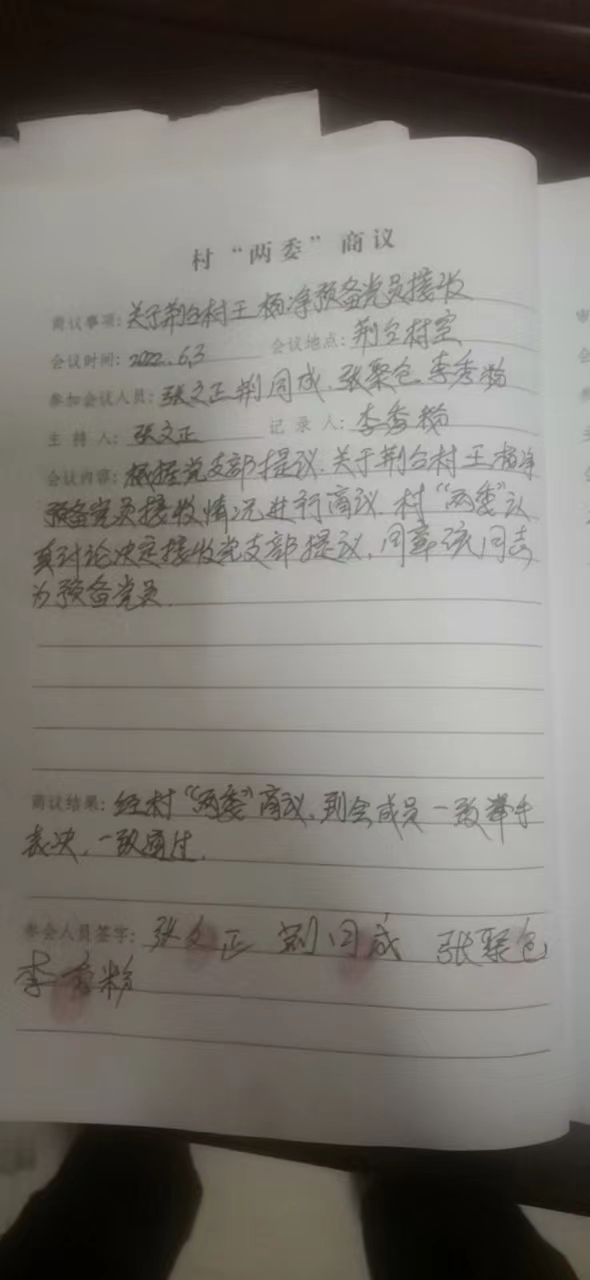 村“两委”商议
商议事项:关于荆台村王杨净预备党员接收
会议时间:2022.6.3 会议地点:荆台村室
参加会议人员:张文正 荆同成 张聚仓 李秀粉
主持人:张文正 记录人:李秀粉
会议内容:根据党支部提议.关于荆台村王杨净
预备党员接收情况进行商议.村“两委”认
真讨论决定接收党支部提议.同意该同志
为预备党员.
商议结果:经村“两委”商议.到会成员一致举手
表决.一致通过.
参会人员签字:张文正 荆同成 张聚仓
李秀粉